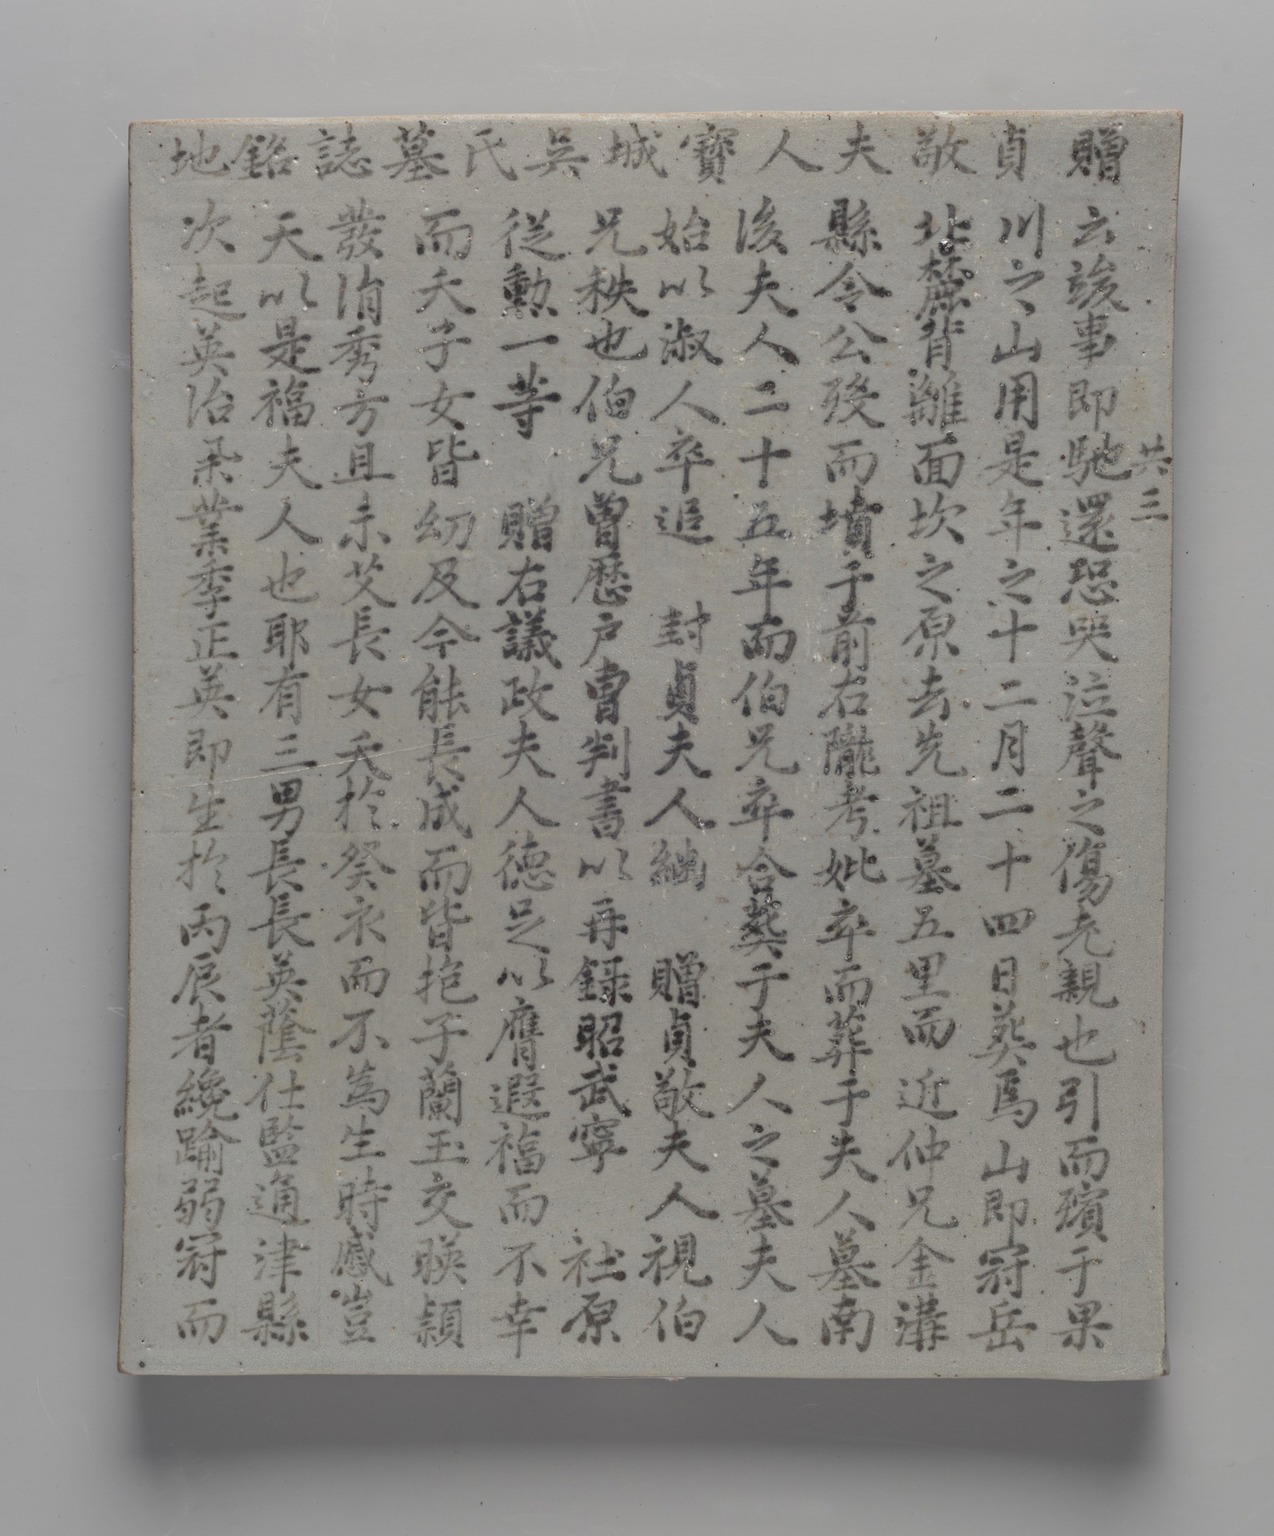 贈貞敬夫人寶城吳氏墓誌銘地
共三
云竣事即馳還恐哭泣聲之傷老親也引而殯于果
川之山用是年之十二月二十四日葬焉山即冠岳
北麓背離面坎之原去先祖墓五里而近仲兄金溝
縣令公歿而墳于前右隴考妣卒而葬于夫人墓南
後夫人二十五年而伯兄卒合葬于夫人之墓夫人
始以淑人卒追 封貞夫人繼 贈貞敬夫人視伯
兄秩也伯兄曾歷戶曹判書以再錄昭武寧 社原
從勳一等 贈右議政夫人德足以膺遐福而不幸
而夭子女皆幼及今能長成而皆抱子蘭玉交暎穎
發淯秀方且未艾長女夭於癸未而不為生時慼豈
天以是福夫人也耶有三男長長英蔭仕監通津縣
次起英治儒業季正英即生於丙辰者纔踰弱冠而